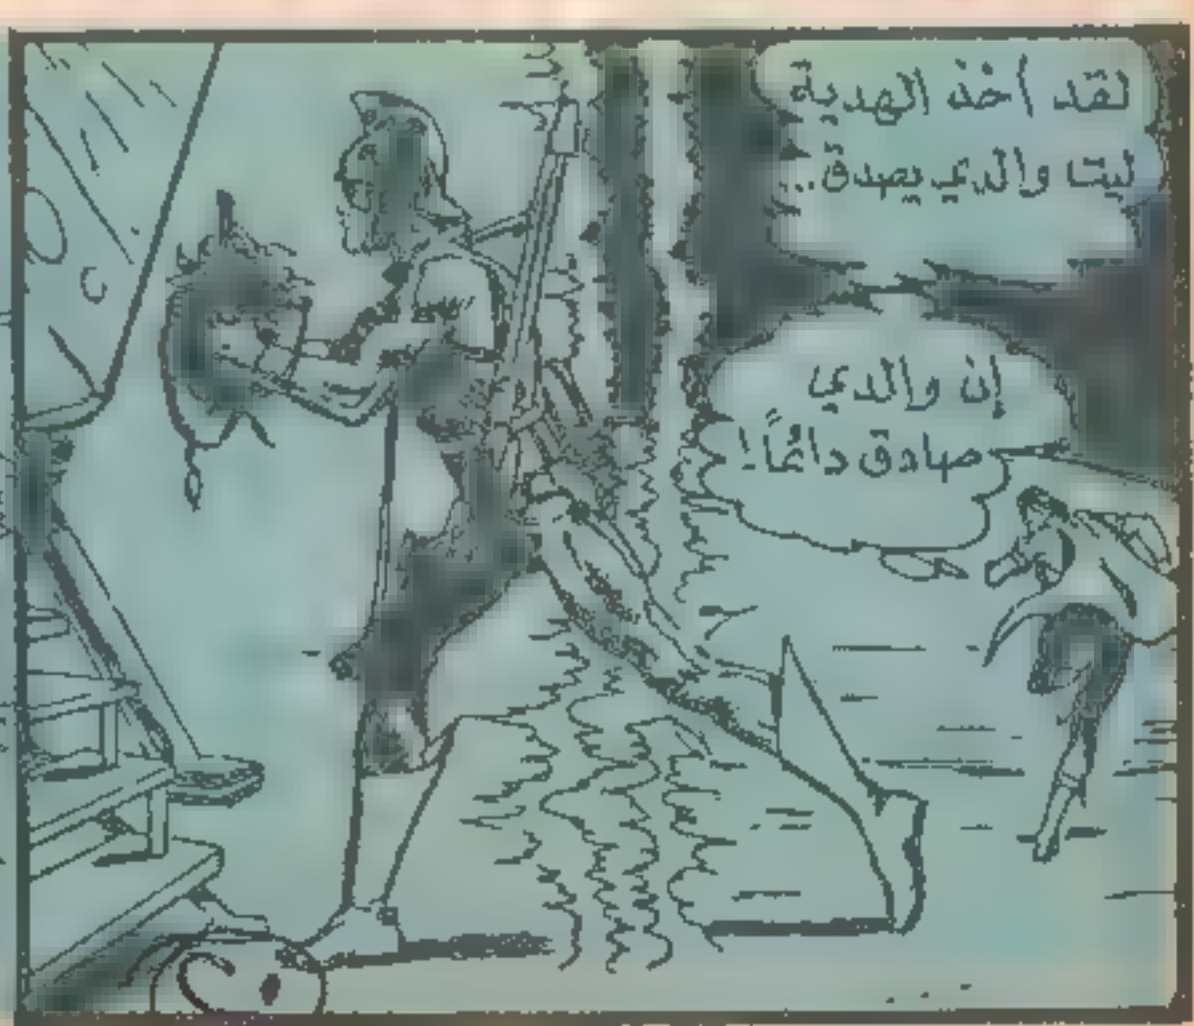 لقد أخذ الهدية
ليت والدي يصدق..
إن والدي
صادق دائمًا!